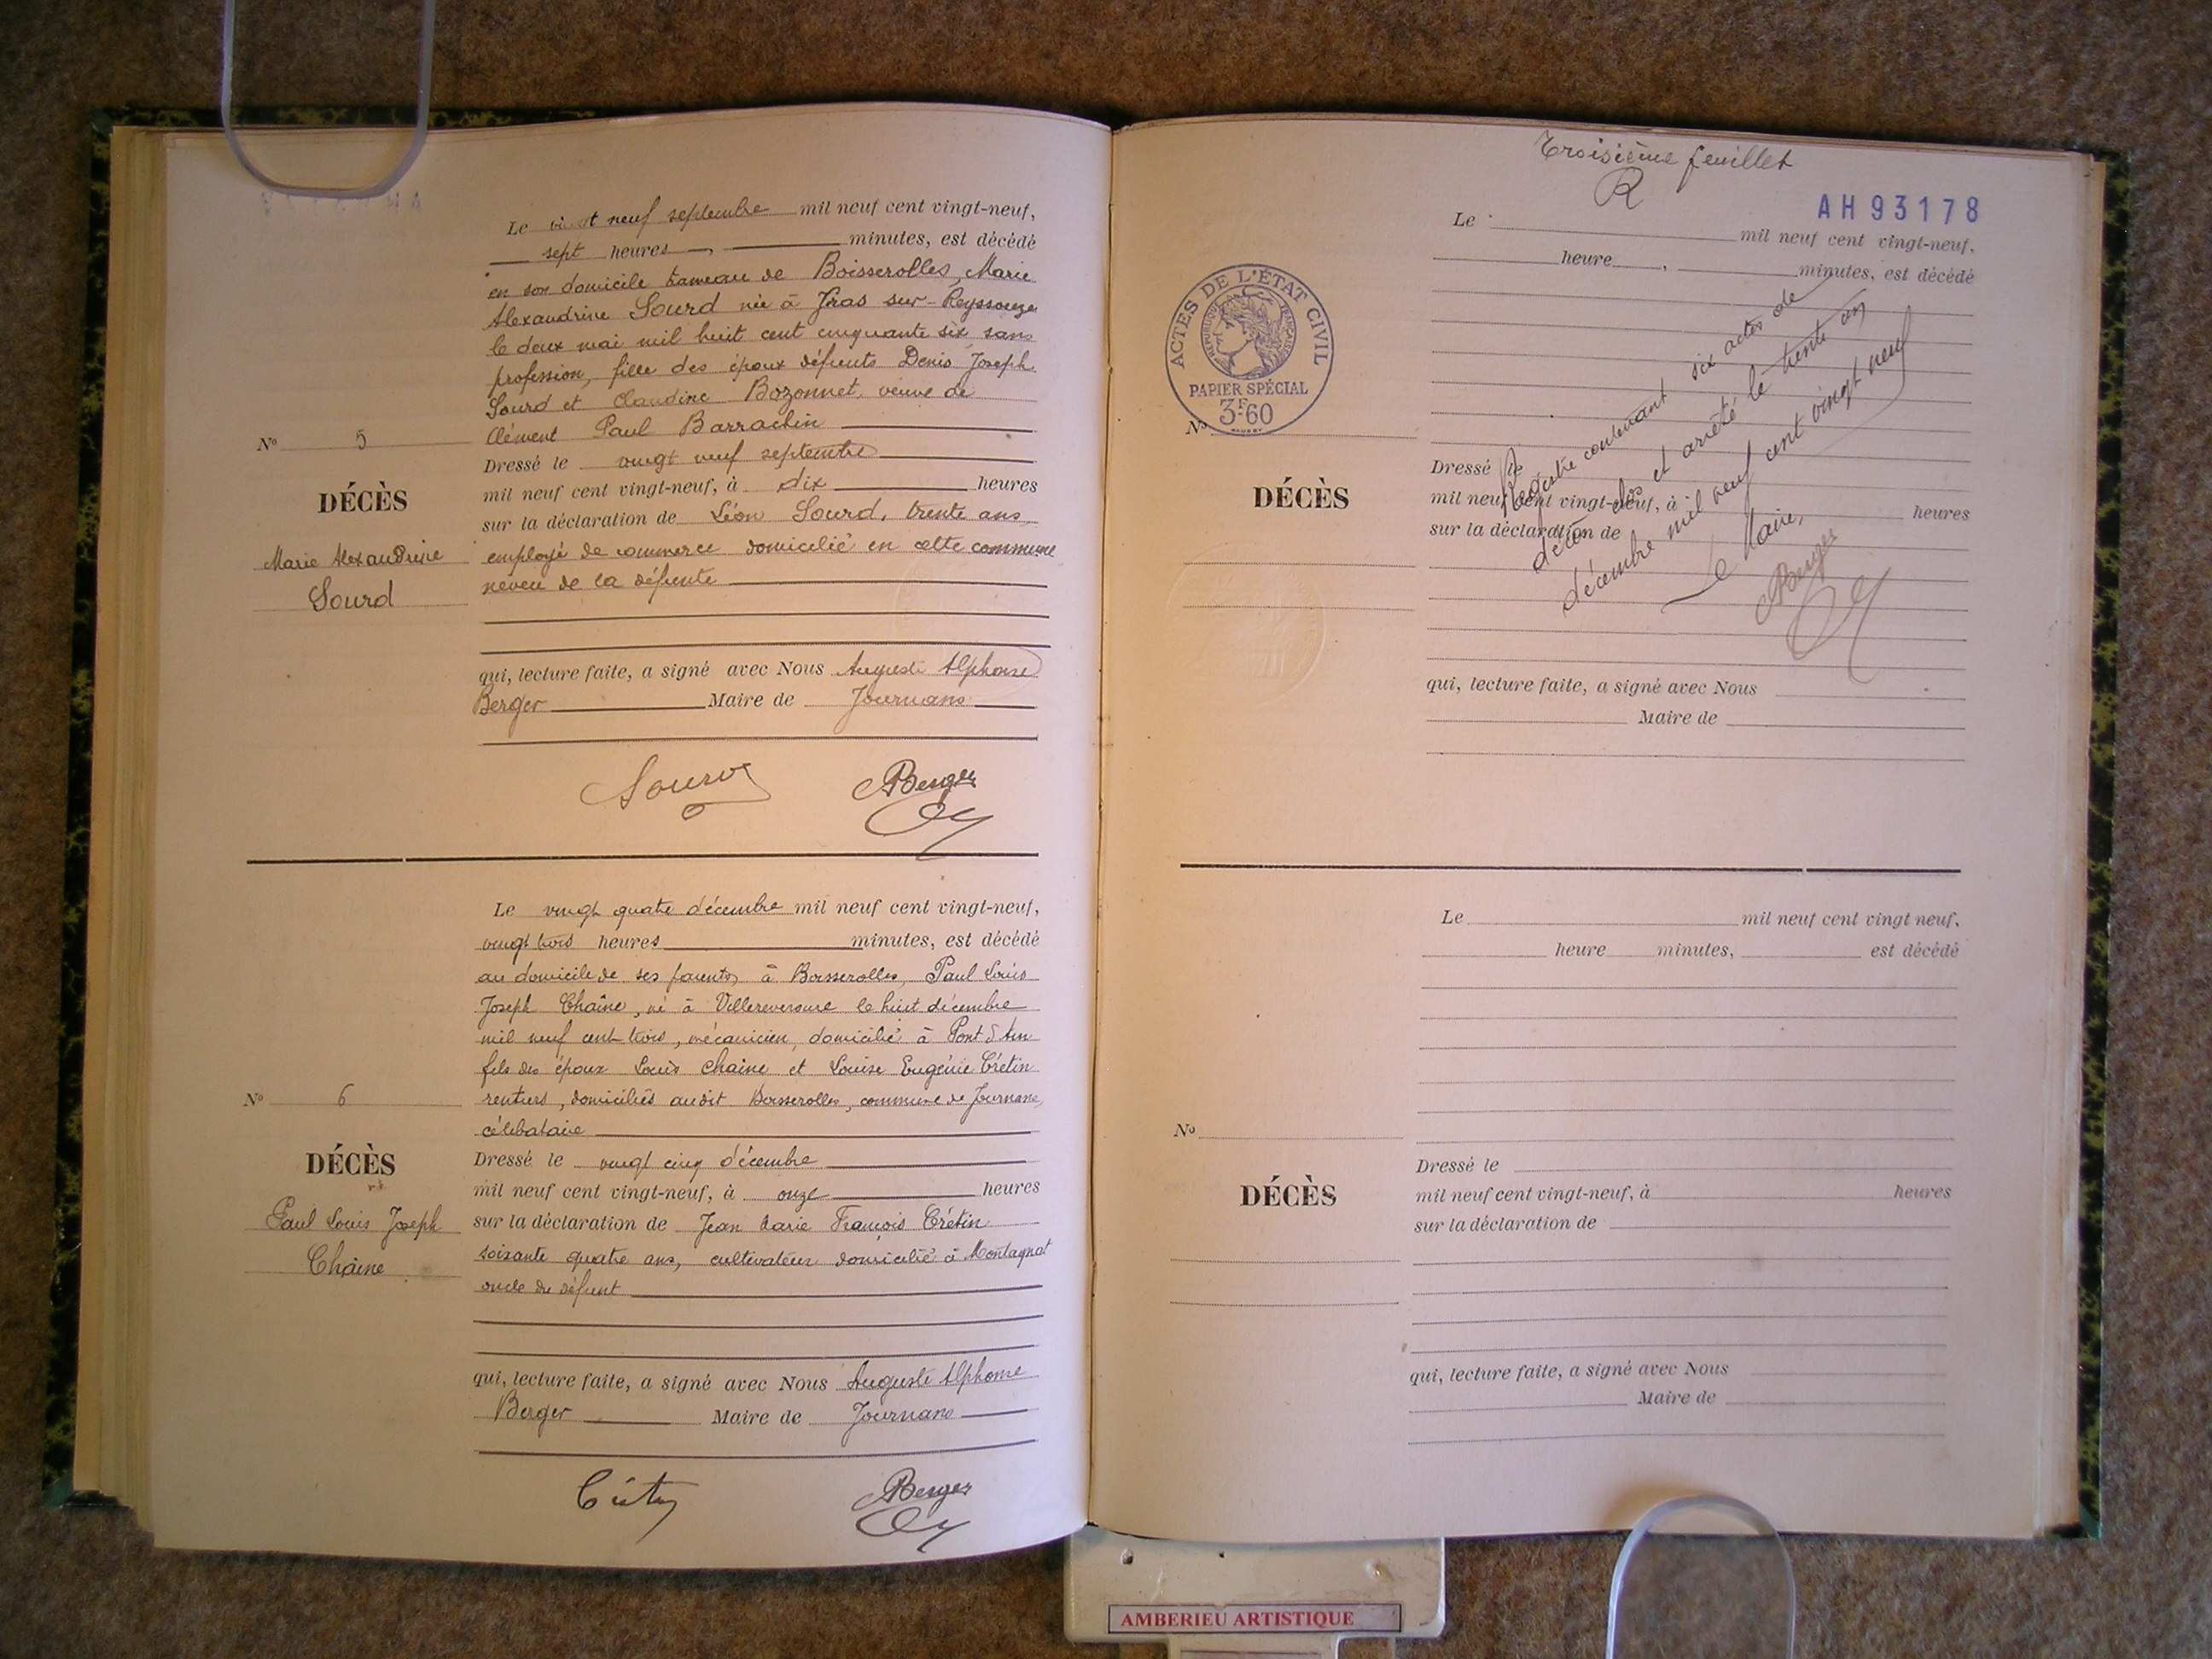 Le vingt neuf septembre mil neuf cent vingt-neuf,
sept heures, minutes, est décédé
en son domicile hameau de Boisserolles, Marie
Alexandrine Sourd née à Jras sur-Reyssouze
le deux mai mil huit cent cinquante six, sans
profession, fille des époux défunts Denis Joseph
Sourd et Claudine Bozonnet, veuve de
Clément Paul Barrachin
Nº 5
DÉCÈS
Marie Alexandrine
Sourd
Dressé le vingt neuf septembre
mil neuf cent vingt-neuf, à dix heures
sur la déclaration de Léon Sourd, trente ans
employé de commerce domicilié en cette commune
neveu de la défunte
qui, lecture faite, a signé avec Nous Auguste Alphonse
Berger Maire de Journans
Sourd ABerger
Le vingt quatre décembre mil neuf cent vingt-neuf,
vingt trois heures minutes, est décédé
au domicile de ses parents, à Boisserolles, Paul Louis
Joseph Chaîne, né à Villereversure le huit décembre
mil neuf cent trois, mécanicien, domicilié à Pont d'Ain
fils des époux Louis Chaine et Louise Eugénie Crétin
rentiers, domiciliés audit Boisserolles, commune de Journans,
célibataire
Nº 6
DÉCÈS
Paul Louis Joseph
Chaine
Dressé le vingt cinq décembre
mil neuf cent vingt-neuf, à onze heures
sur la déclaration de Jean Marie François Crétin
soixante quatre ans, cultivateur domicilié à Montagnat
oncle du défunt
qui, lecture faite, a signé avec Nous Auguste Alphonse
Berger Maire de Journans
ABerger
Troisième feuillet
R
AH93178
Le mil neuf cent vingt-neuf,
heure, minutes, est décédé
ACTES DE L'ÉTAT CIVIL
RÉPUBLIQUE FRANÇAISE
PAPIER SPÉCIAL
3F60
Nº
DÉCÈS
Dressé le
mil neuf cent vingt-neuf, à heures
sur la déclaration de
Registre contenant six actes de
décès clos et arrêté le trente un
décembre mil neuf cent vingt neuf
Le Maire,
ABerger
qui, lecture faite, a signé avec Nous
Maire de
Le mil neuf cent vingt neuf,
heure minutes, est décédé
Nº
DÉCÈS
Dressé le
mil neuf cent vingt-neuf, à heures
sur la déclaration de
qui, lecture faite, a signé avec Nous
Maire de
AMBERIEU ARTISTIQUE